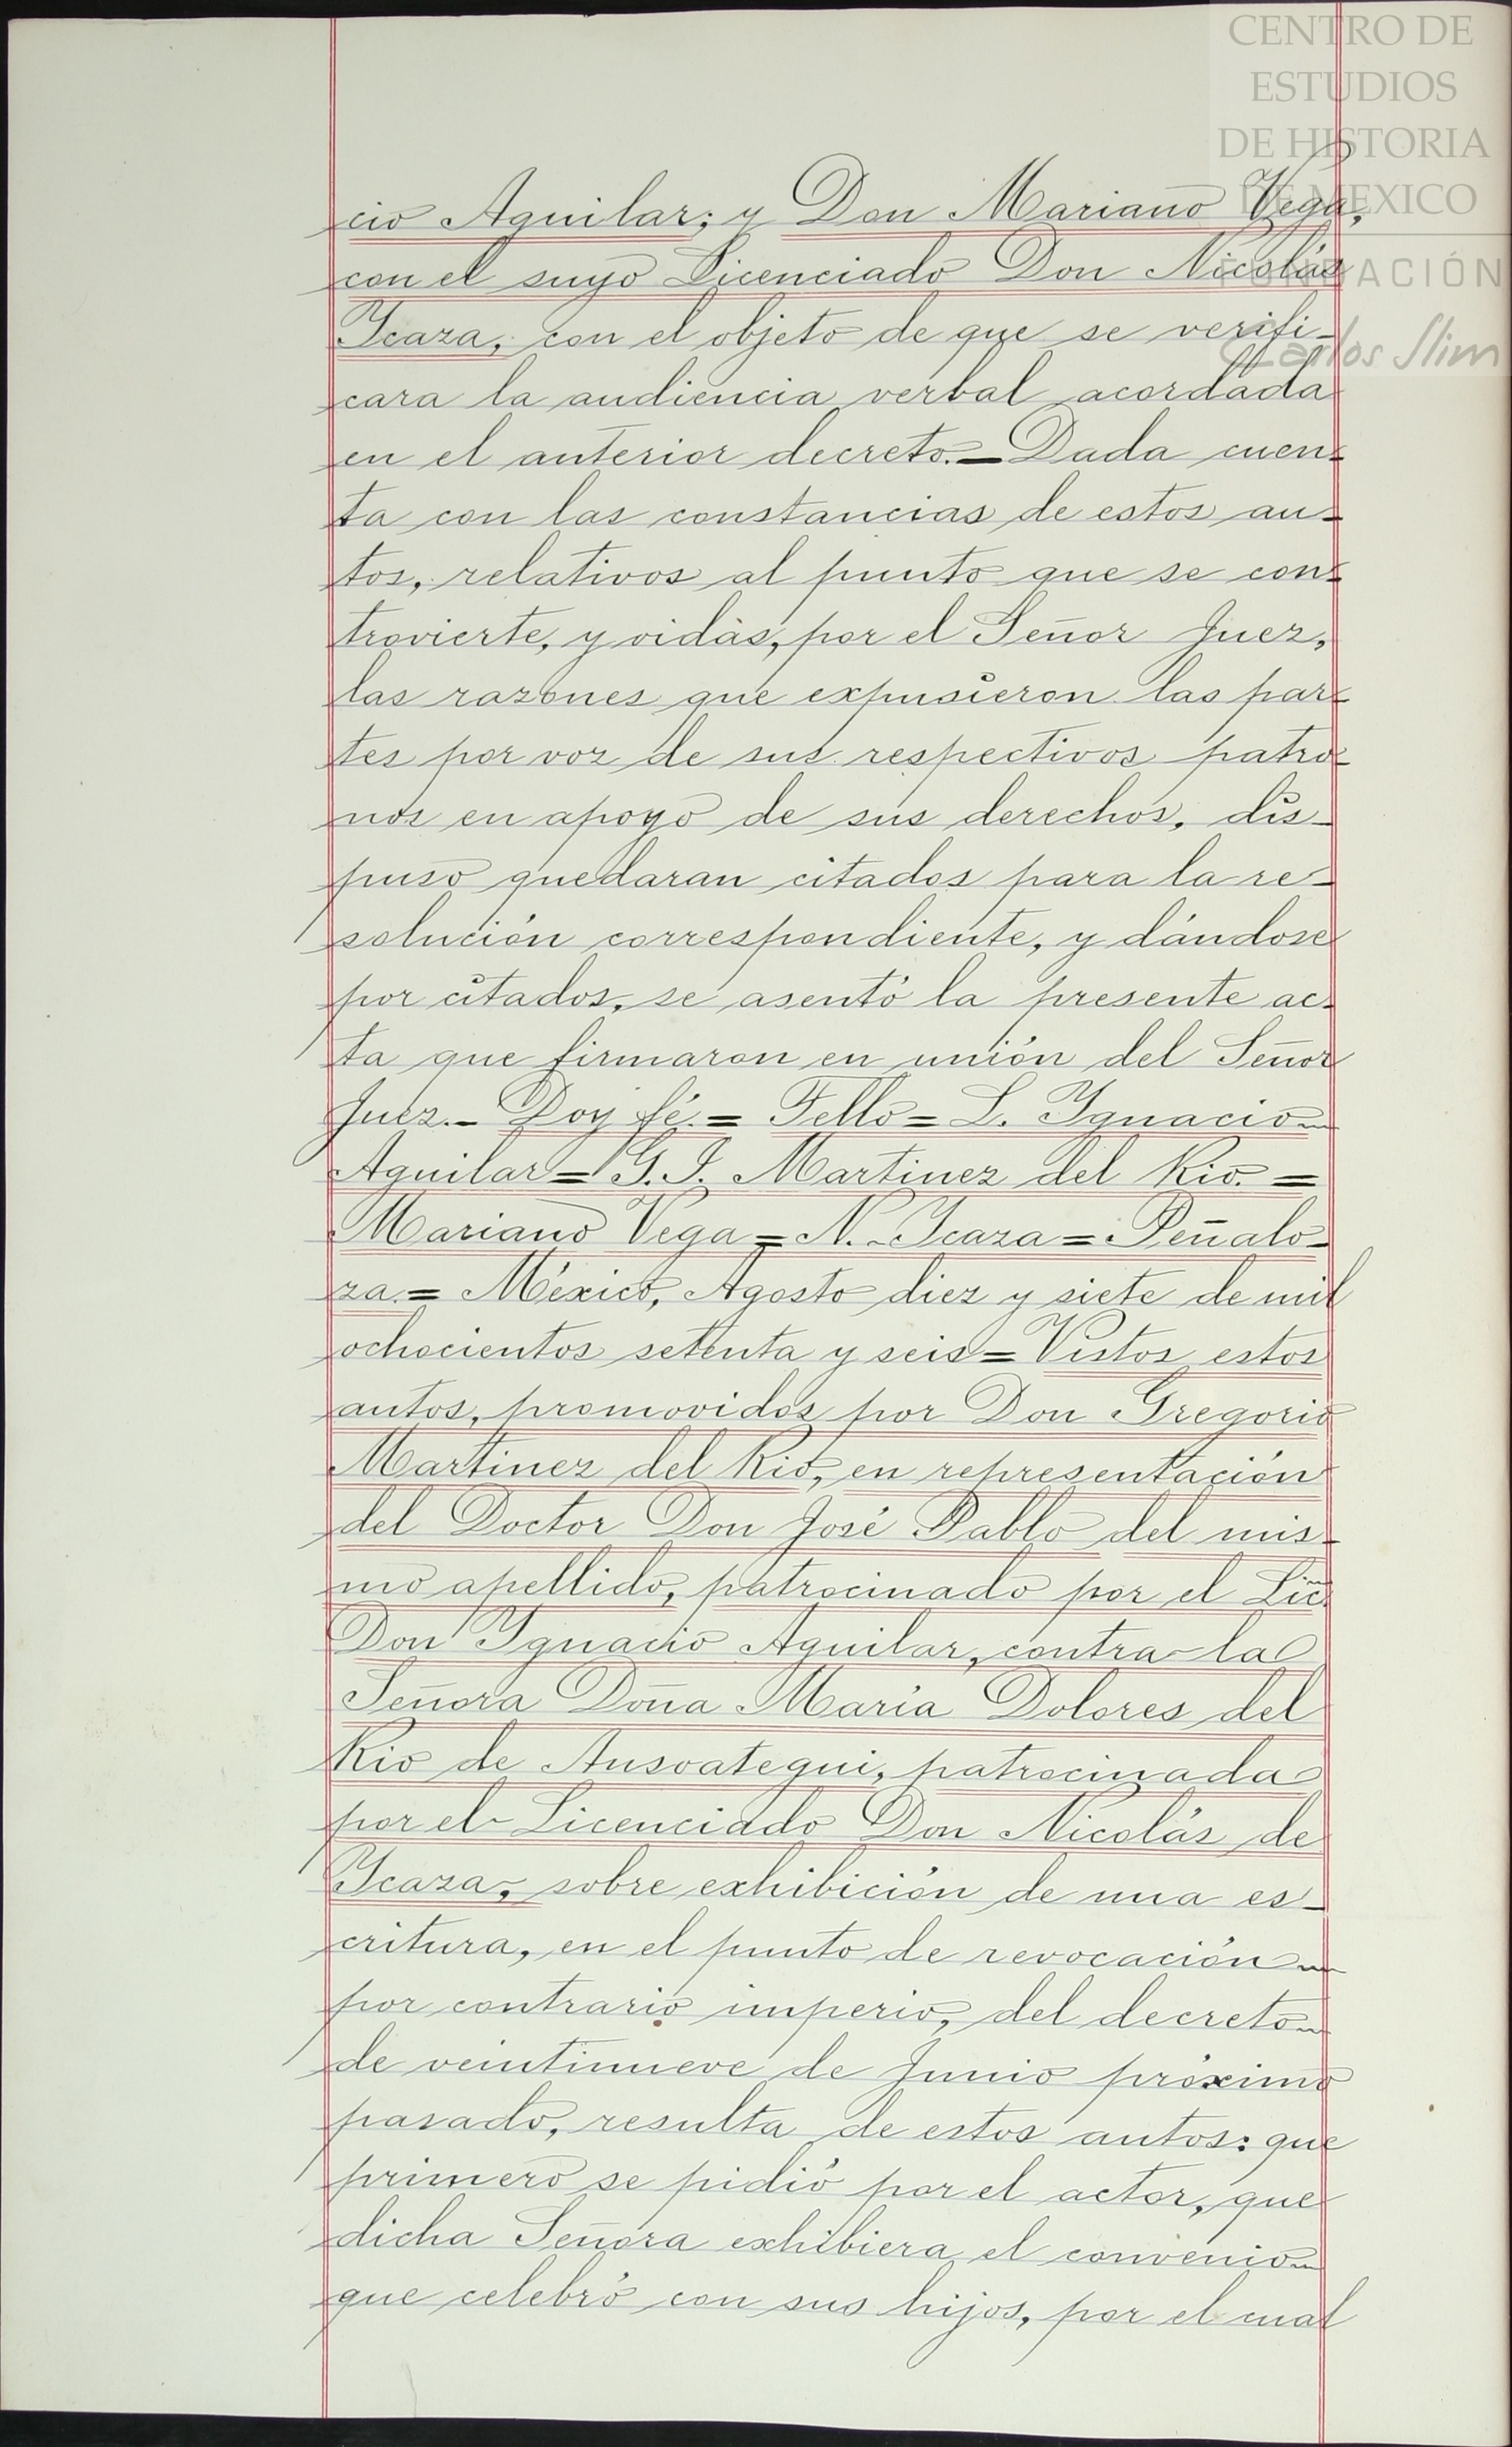 CENTRO DE
ESTUDIOS
DE HISTORIA
DE MEXICO
FUNDACIÓN
Carlos Slim
cio Aguilar; y Don Mariano Vega,
con el suyo Licenciado Don Nicolás
Ycaza, con el objeto de que se verifi-
cara la audiencia verbal acordada
en el anterior decreto.=Dada cuen-
ta con las constancias de estos au-
tos, relativos al punto que se con-
trovierte, y oidas, por el Señor Juez,
las razones que expusieron las par-
tes por voz de sus respectivos patro-
nos en apoyo de sus derechos, dis-
puso quedaran citados para la re-
solución correspondiente, y dándose
por citados, se asentó la presente ac-
ta que firmaron en unión del Señor
Juez.- Doy fé.= Tello= L. Ygnacio
Aguilar= G.I. Martinez del Rio.=
Mariano Vega= N. Ycaza= Peñalo-
za.= México, Agosto diez y siete de mil
ochocientos setenta y seis= Vistos estos
autos, promovidos por Don Gregorio
Martinez del Rio, en representación
del Doctor Don José Pablo del mis-
mo apellido, patrocinado por el Lic.
Don Ygnacio Aguilar, contra la
Señora Doña María Dolores del
Rio de Ansoategui, patrocinada
por el Licenciado Don Nicolás de
Ycaza, sobre exhibición de una es-
critura, en el punto de revocación
por contrario imperio, del decreto
de veintinueve de Junio próximo
pasado, resulta de estos autos: que
primero se pidió por el actor, que
dicha Señora exhibiera el convenio
que celebró con sus hijos, por el cual